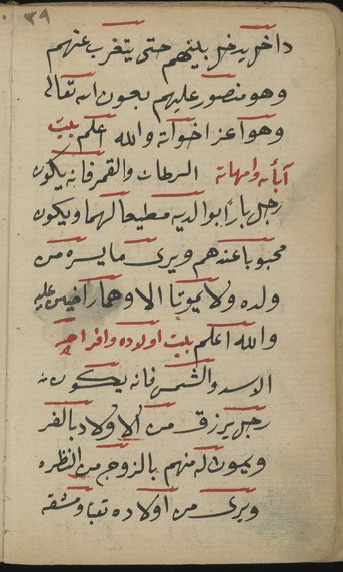 ٣٩
داخل يدخل بينهم حتى يتغرب عنهم
وهو منصور عليهم بعون الله تعالى
وهو اعز اخواته والله اعلم بيت
آبائه وامهاته السرطان والقمر فانه يكون
رجل بارًا بوالديه مطيعا لهما ويكون
محبوبا عندهم ويرى ما يسره من
ولده ولا يموتا الا وهما راضين عليه
والله اعلم بيت اولاده وافراحه
الاسد والشمس فانه يكون
رجل يرزق من الاولاد بالفر
ويموت له منهم بالزوج من النظره
ويرى من اولاده تعبا ومشقه